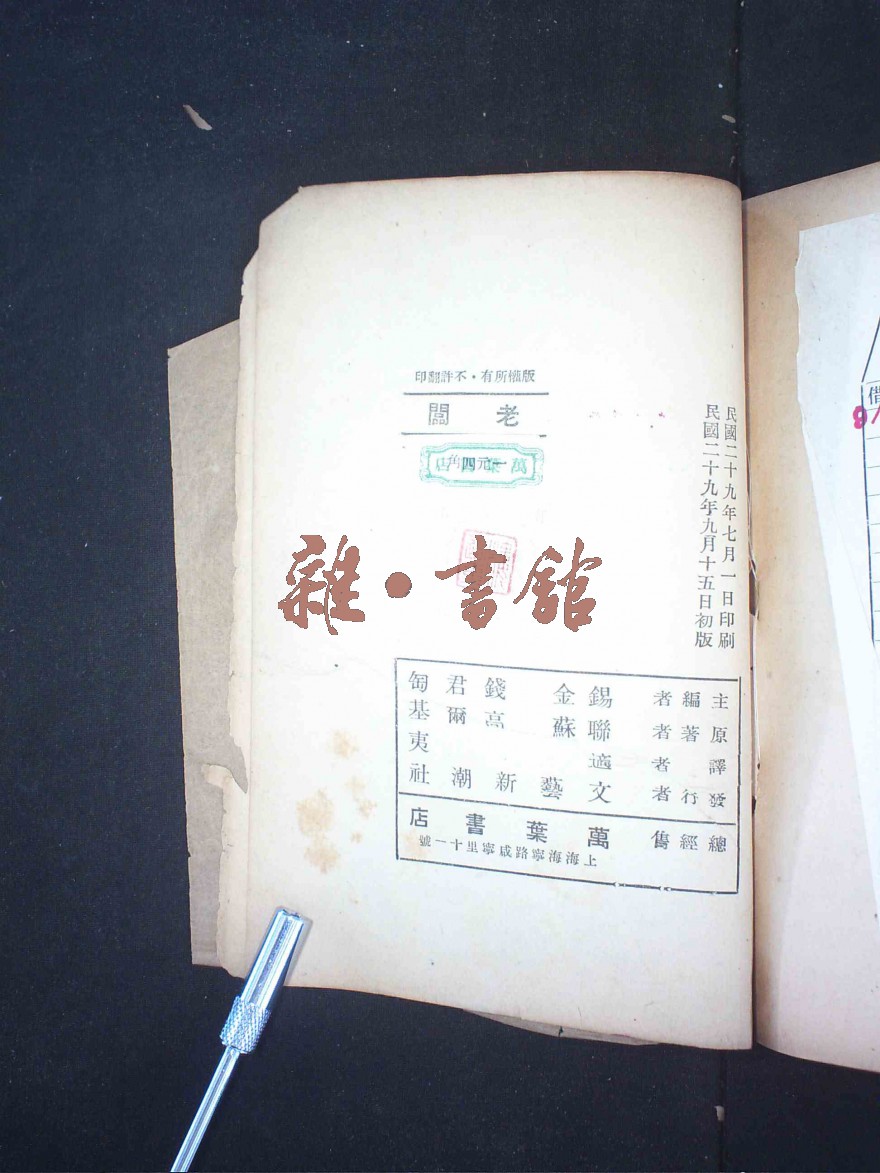 版權所有・不許翻印
老闆
萬葉書店
一元四角
民國二十九年七月一日印刷
民國二十九年九月十五日初版
雜・書館
主編者 錫金 錢君匋
原著者 聯蘇 高爾基
譯者 適夷
發行者 文藝新潮社
總經售 萬葉書店
上海海寧路咸寧里十一號
借